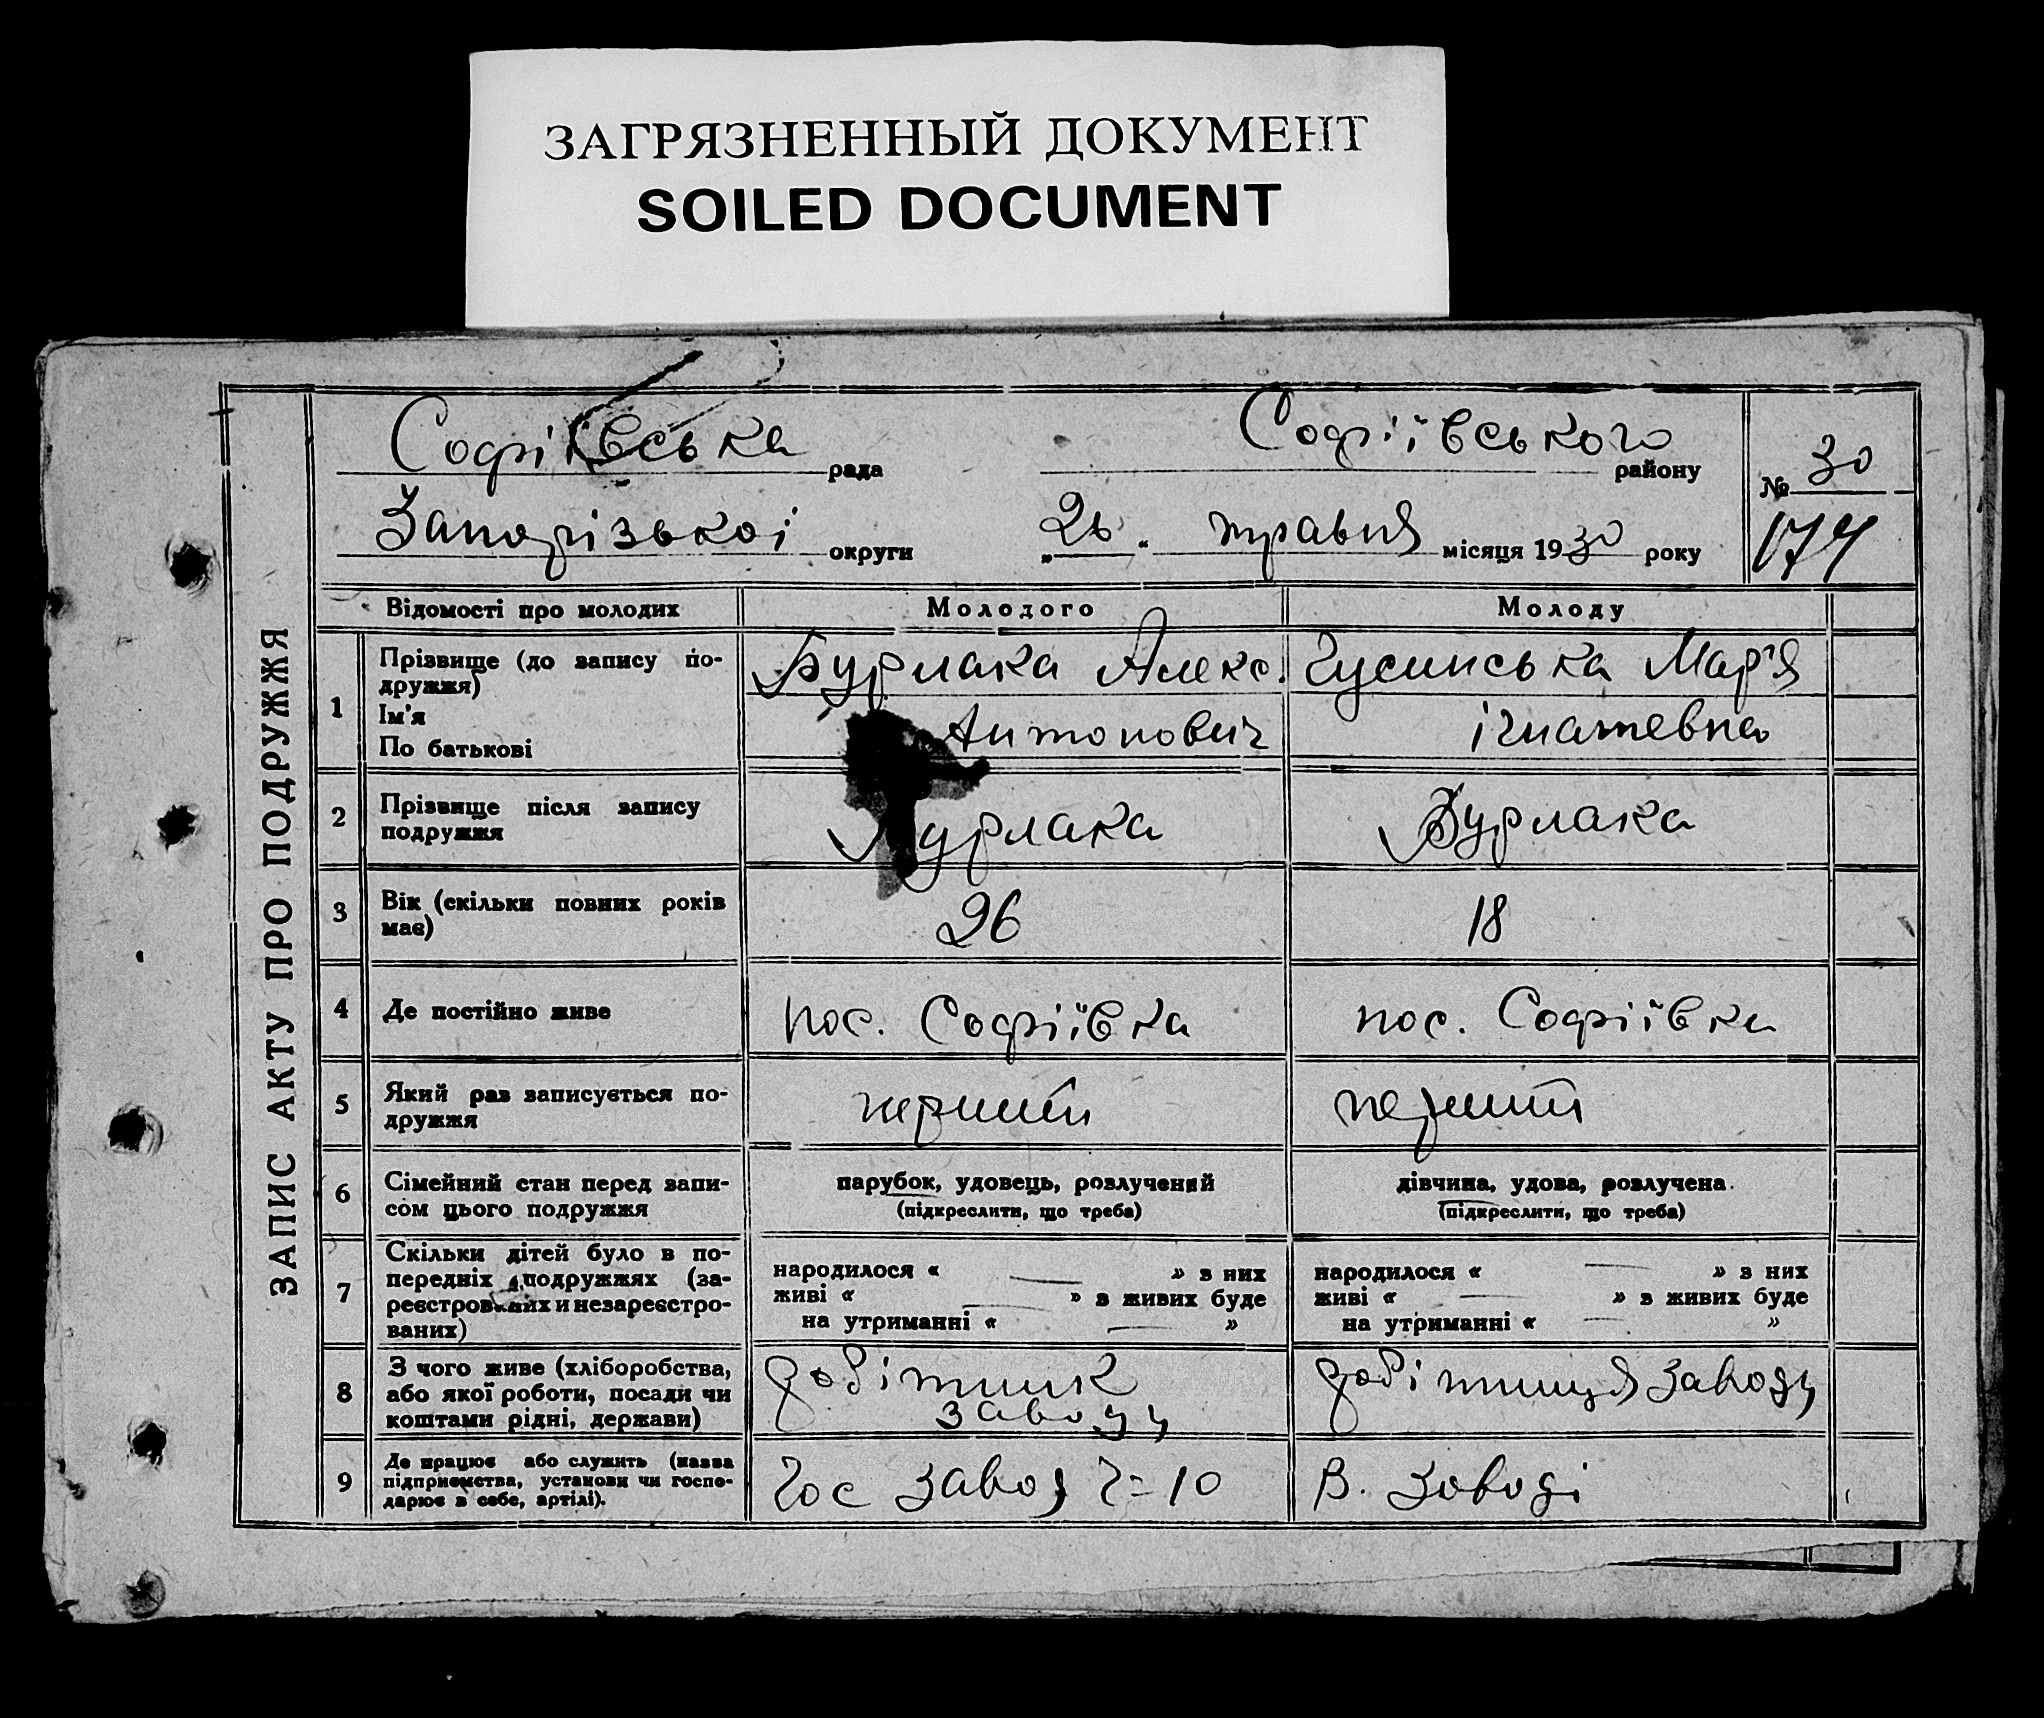 ЗАГРЯЗНЕННЫЙ ДОКУМЕНТ
SOILED DOCUMENT
ЗАПИС АКТУ ПРО ПОДРУЖЖЯ
Софіївська рада Софіївського району № 30
Запорізької округи „26“ травня місяця 1930 року 174
Відомості про молодих Молодого Молоду
1 Прізвище (до запису по- Бурлака Алекс. Гусинська Мар'я
дружжя)
Ім'я Антонович ігнатевна
По батькові
2 Прізвище після запису Бурлака Бурлака
подружжя
3 Вік (скільки повних років 26 18
має)
4 Де постійно живе пос. Софіївка пос. Софіївка
5 Який раз записується по- перший перший
дружжя
6 Сімейний стан перед запи- парубок, удовець, розлучений дівчина, удова, розлучена.
сом цього подружжя (підкреслити, що треба) (підкреслити, що треба)
7 Скільки дітей було в по- народилося « — » з них народилося « — » з них
передніх подружжях (за- живі « — » з живих буде живі « — » з живих буде
реєстрованих и незареєстро- на утриманні « — » на утриманні « — »
ваних)
8 З чого живе (хліборобства, робітник робітниця заводу
або якої роботи, посади чи заводу
коштами рідні, держави)
9 Де працює або служить (назва Гос завод г=10 в. заводі
підприємства, установи чи госпо-
дарює в себе, артілі).